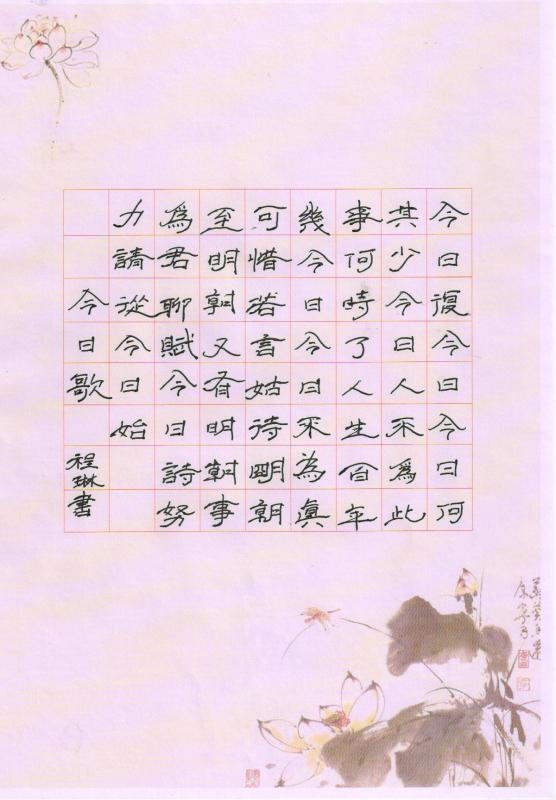 今日復今日今日何
其少今日人不爲此
事何時了人生百年
幾今日今日不為真
可惜若言姑待明朝
至明朝又有明朝事
為君聊賦今日詩努
力請從今日始
今日歌
程琳書